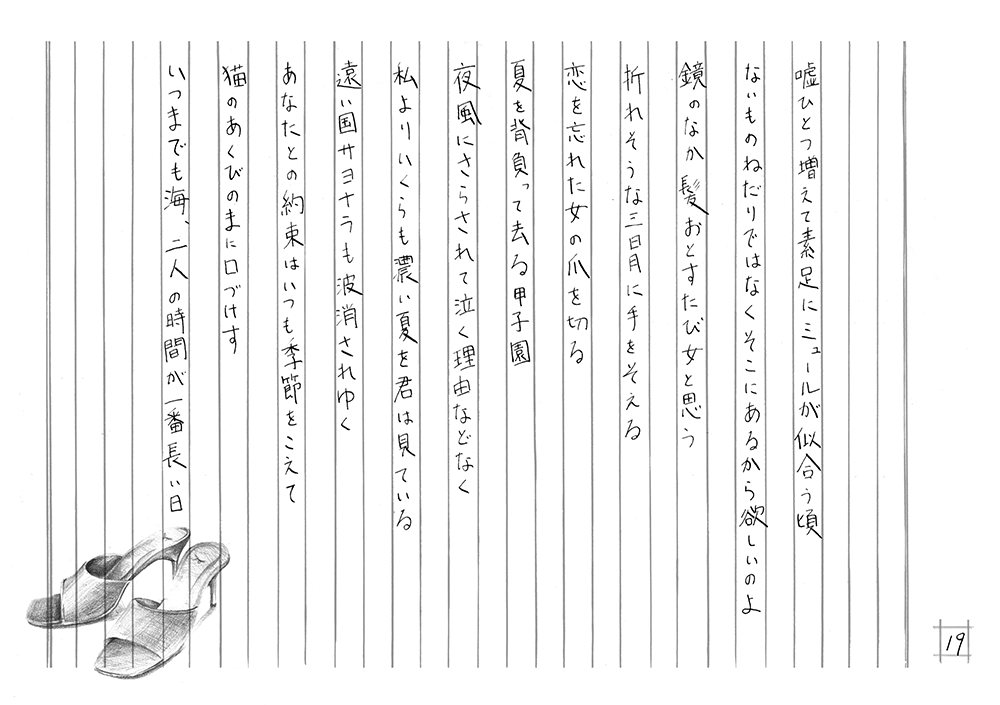 嘘ひとつ増えて素足にミュールが似合う頃
ないものねだりではなくそこにあるから欲しいのよ
鏡のなか髪おとすたび女と思う
折れそうな三日月に手をそえる
恋を忘れた女の爪を切る
夏を背負って去る甲子園
夜風にさらされて泣く理由などなく
私よりいくらも濃い夏を君は見ている
遠い国サヨナラも波消されゆく
あなたとの約束はいつも季節をこえて
猫のあくびのまに口づけす
いつまでも海、二人の時間が一番長い日
19